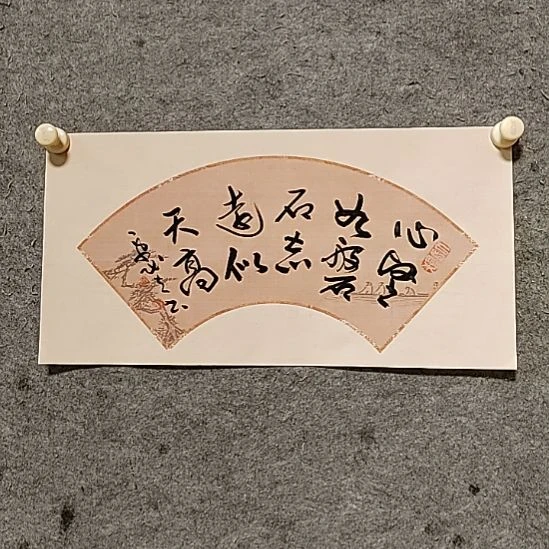 心堅
如磐
石志
遠似
天高